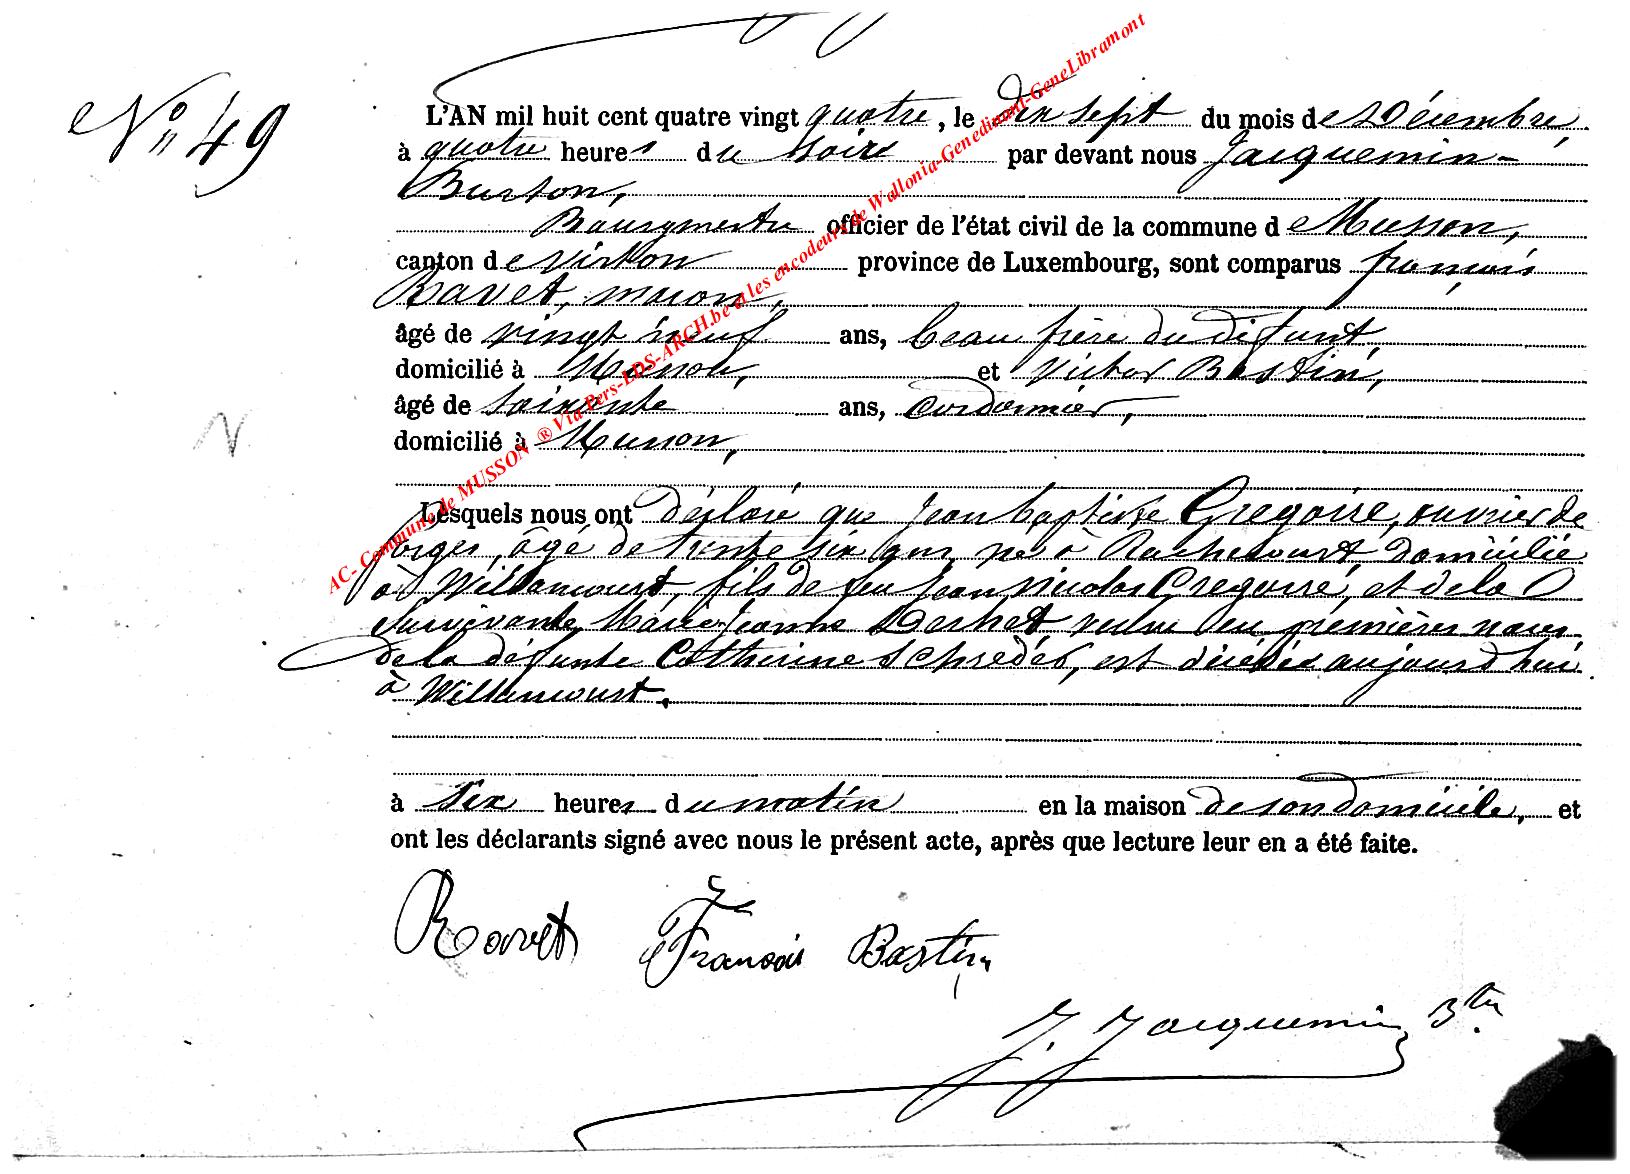 N° 49
L'AN mil huit cent quatre vingt quatre, le dix sept du mois de Décembre,
à quatre heures du soir par devant nous Jacquemin-
Burton,
Bourgmestre officier de l'état civil de la commune de Musson,
canton de Virton province de Luxembourg, sont comparus françois
Ravet, maçon,
âgé de vingt neuf ans, beau frère du défunt,
domicilié à Musson, et Victor Bastin,
âgé de soixante ans, cordonnier,
domicilié à Musson,
Lesquels nous ont déclaré que Jean baptiste Gregoire, ouvrier de
forges, âgé de trente six ans, né à Rachecourt, domicilié
à Willancourt, fils de feu Jean Nicolas Gregoire, et de la
survivante Marie Jeanne veuf en premières noces
de la défunte Catherine Schreder, est décédé aujourd'hui
à Willancourt.
à six heures du matin en la maison de son domicile, et
ont les déclarants signé avec nous le présent acte, après que lecture leur en a été faite.
Ravet François Bastin
J. Jacquemin Btn
N
AC- Commune de MUSSON ® Via Pers-LDS-ARCH.be et les encodeurs de Wallonia-Genedinant-GeneLibramont